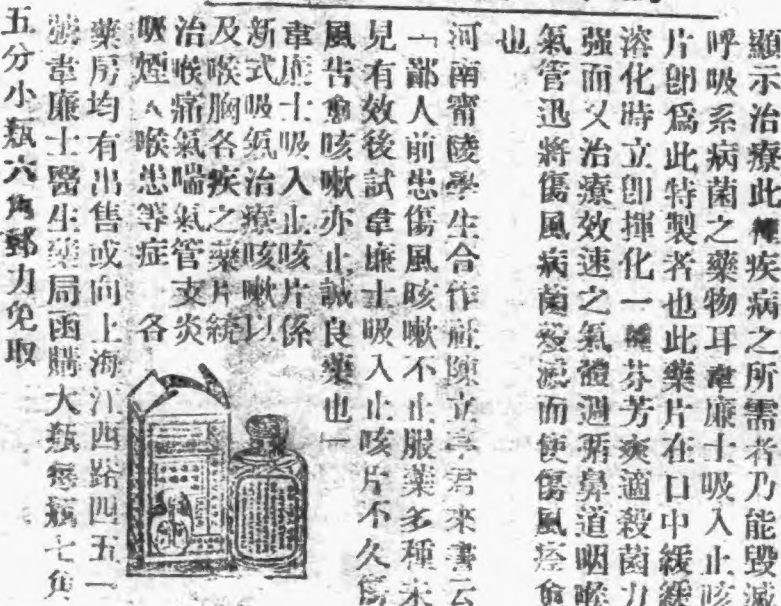 顯示治療此種疾病之所需者乃能毀滅
呼吸系病菌之藥物耳韋廉士吸入止咳
片卽爲此特製者也此藥片在口中緩緩
溶化時立卽揮化一種芬芳爽適殺菌力
强而又治療效速之氣體週骊鼻道咽喉
氣管迅將傷風病菌殺滅而使傷風痊愈
也
河南甯陵學生合作社陳立 君來書云
「鄙人前患傷風咳嗽不止服藥多種未
見有效後試韋廉士吸入止咳片不久傷
風告愈咳嗽亦止誠良藥也」
韋廉士吸入止咳片係
新式吸氣治療咳嗽以
及喉胸各疾之藥片統
治喉痛氣喘氣管支炎
吸煙人喉患等症 各
藥房均有出售或向上海江西路四五一
號韋廉士醫生藥局函購大瓶每瓶七角
五分小瓶六角郵力免取